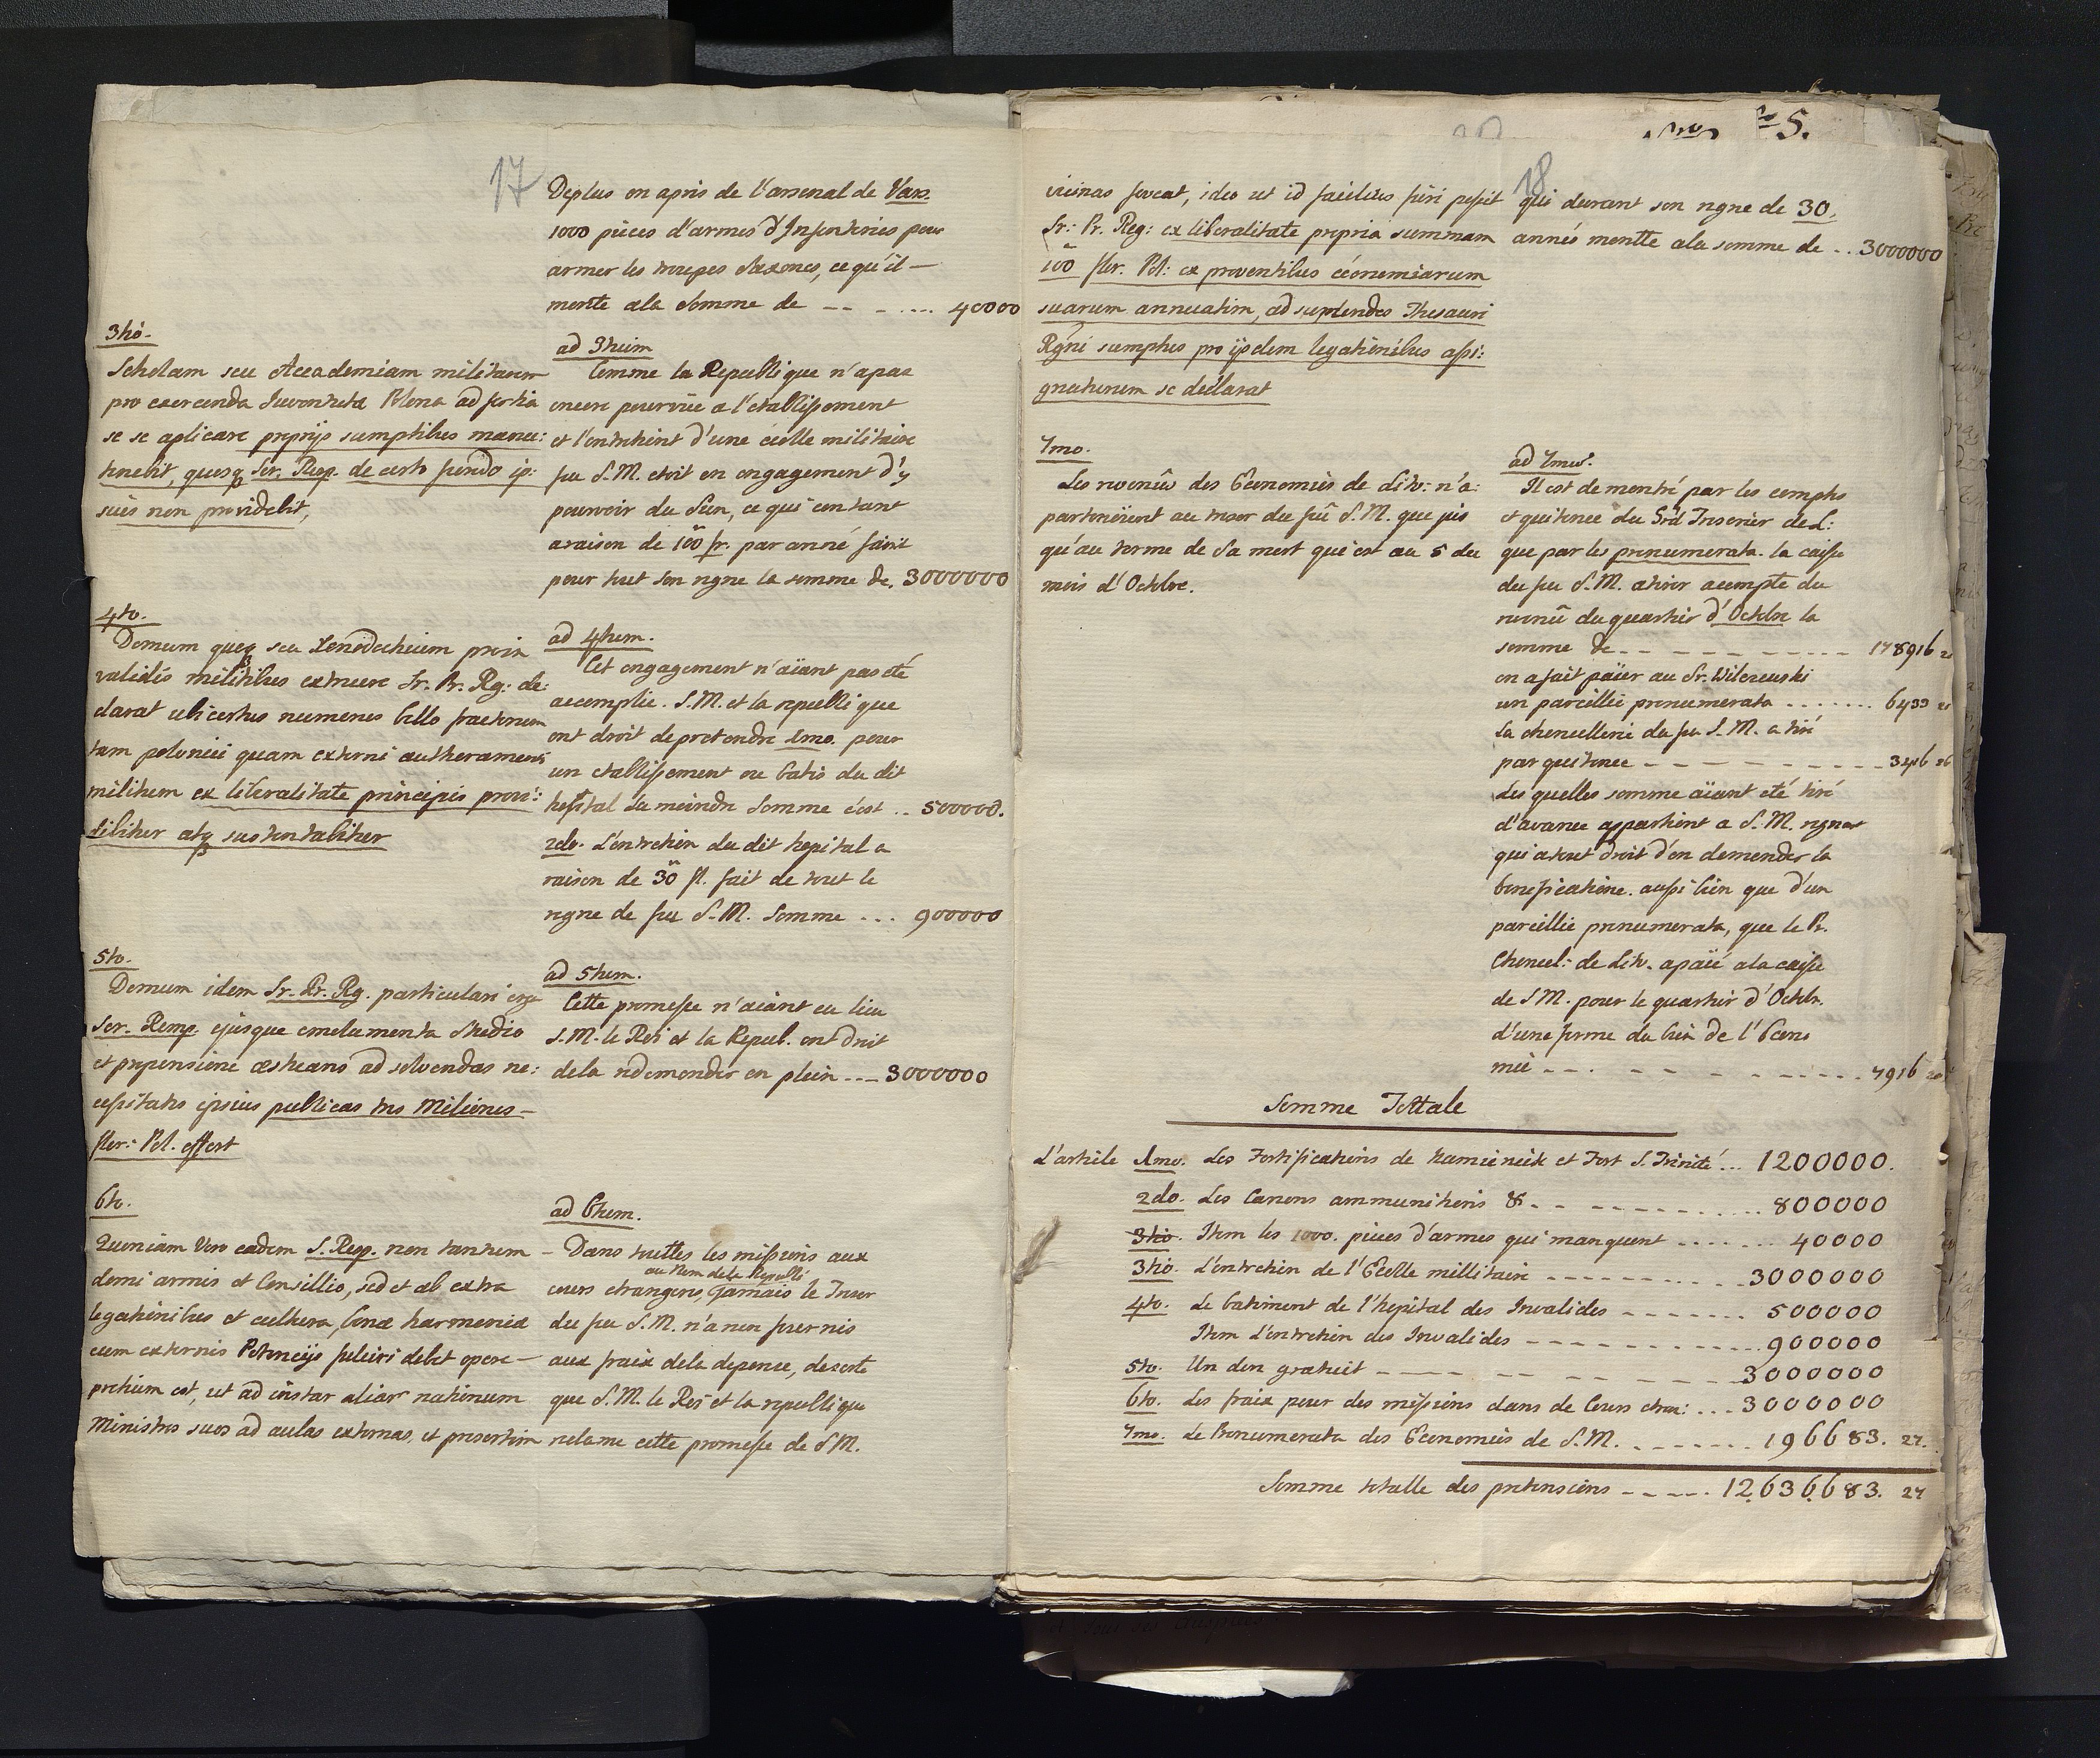 17
Deplus on apris de l'arsenal de Vars.
1000 pièces d'armes d'Infenteries pour
armer les troupes Saxones, ce qu'il
monte ala Somme de -- - .... 40000
3tiò.
Scholam seu Accademiam militarem
pro exercenda Juventute Polona ad
se se aplicare proprijs sumptibus manu:
tenebit, quousq Ser. Resp. de certo fundo ip:
sius non providebit,
ad 3tium
Comme la Republique n'apas
encore pourvüe a l'etablissement
et l'entretient d'une écolle militaire
feu S.M. etoit en engagement d'y
pourvoir du Sien, ce qui contant
araison de 100 fr. par anné fait
pour tout son regne la somme de. 3000000
4to.
Domum quoq seu Xenodochium pro in
validis militibus extruere Sr. Pr. Rg: de:
clarat ubi certus numerus bello fractorum
tam polonici quam externi
militum ex liberalitate principis provi:
sibiliter atq sustentabiliter
ad 4tum.
Cet engagement n'aïant pas eté
accomplie. S.M. et la republique
ont droit depretendre 1mo. pour
un etablissement ou batis du dit
hopital la moindre Somme c'est .. 500000.
2do. L'entretien du dit hopital a
raison de 30 fl. fait de tout le
regne de feu S.M. Somme ... 900000
5to.
Demum idem Sr. Pr. Rg. particulari erga
Ser. Remp. ejusque emolumenta Studio
et propensione ad solvendas ne:
cessitates ipsius publicas tres Miliones
flor: Pol. offert
ad 5tum.
Cette promesse n'aiant eu lieu
S.M. le Roi et la Repub. ont droit
dela redemender en plein ... 3000000
6to.
Quoniam Vero eadem S. Resp. non tantum
domi armis et Consillio, sed et ab extra
legationibus et cultura, bonæ harmoniæ
cum externis Potencijs fulciri debet opere
pretium est, ut ad instar aliar nationum
Ministros suos ad aulas externas, et presertim
ad 6tum.
- Dans touttes les missions aux
au Nom dela Republi
cours etrangeres, Jamais le Tresor
du feu S.M. n'a rien fournis
aux fraix dela depence, desorte
que S.M. le Roi et la republique
reclame cette promesse de S M.
S.
18
vicinas foveat, ideo ut id facilius fieri possit
Sr: Pr. Reg: ex liberalitate propria summam
100 flor. Pol: ex proventibus oéconomiarum
suarum annuatim, ad suplendos Thesauri
Regni sumptus pro ijsdem legationibus assi:
gnaturum se declarat
qui durant son regne de 30.
année montte ala somme de .. 3000000
7mo.
Les revenûs des Economies de Litv: n'a:
partenoïent au tresor du fû S.M. que jus
qu'au terme de Sa mort qui est au 5 du
mois d'Octobre.
ad 7mu.
Il est demontré par les compts
et quitence du Grd Tresorier de L:
que par les prenumerata. la caisse
du feu S.M. atirer acompte du
revenû du quartier d'Octobre la
somme de - - - - - 178916 20
on afait païer au Sr. Wilczewski
un pareillie prenumerata ....... 6433
la chencellerie du feu S.M. a tiré
par quitence - - - - - 3416 26
Les quelles somme aïant eté tiré
d'avance appartient a S.M. regnat
qui atout droit d'en demender la
bonefication. aussi bien que d'un
pareillie prenumerata, que le Pr.
Chencel: de Litv. apaié ala caisse
de SM. pour le quartier d'Octobr.
d'une ferme du bien de l'Econo
mie - - - - - 7916
Somme Tottale
L'article 1mo. Les Fortifications de Kamienick et Fort S. Trinité ... 1200000.
2do. Les Canons ammunitions & - - - 800000
3tio. Item les 1000. pièces d'armes qui manquent ....... 40000
3tio. L'entretien de l'Ecolle millitaire - - - 3000000
4to. Le batiment de l'hopital des Invalides - - - 500000
Item L'entretien des Invalides - - - 900000
5to. Un don gratuit - - - 3000000
6to. Les fraix pour des missions dans de Cours etra: ... 3000000
7mo. Le Prenumerata des Economies de S.M. - - - 196683. 27.
Somme totalle des pretensions - - - 12,636,683. 27